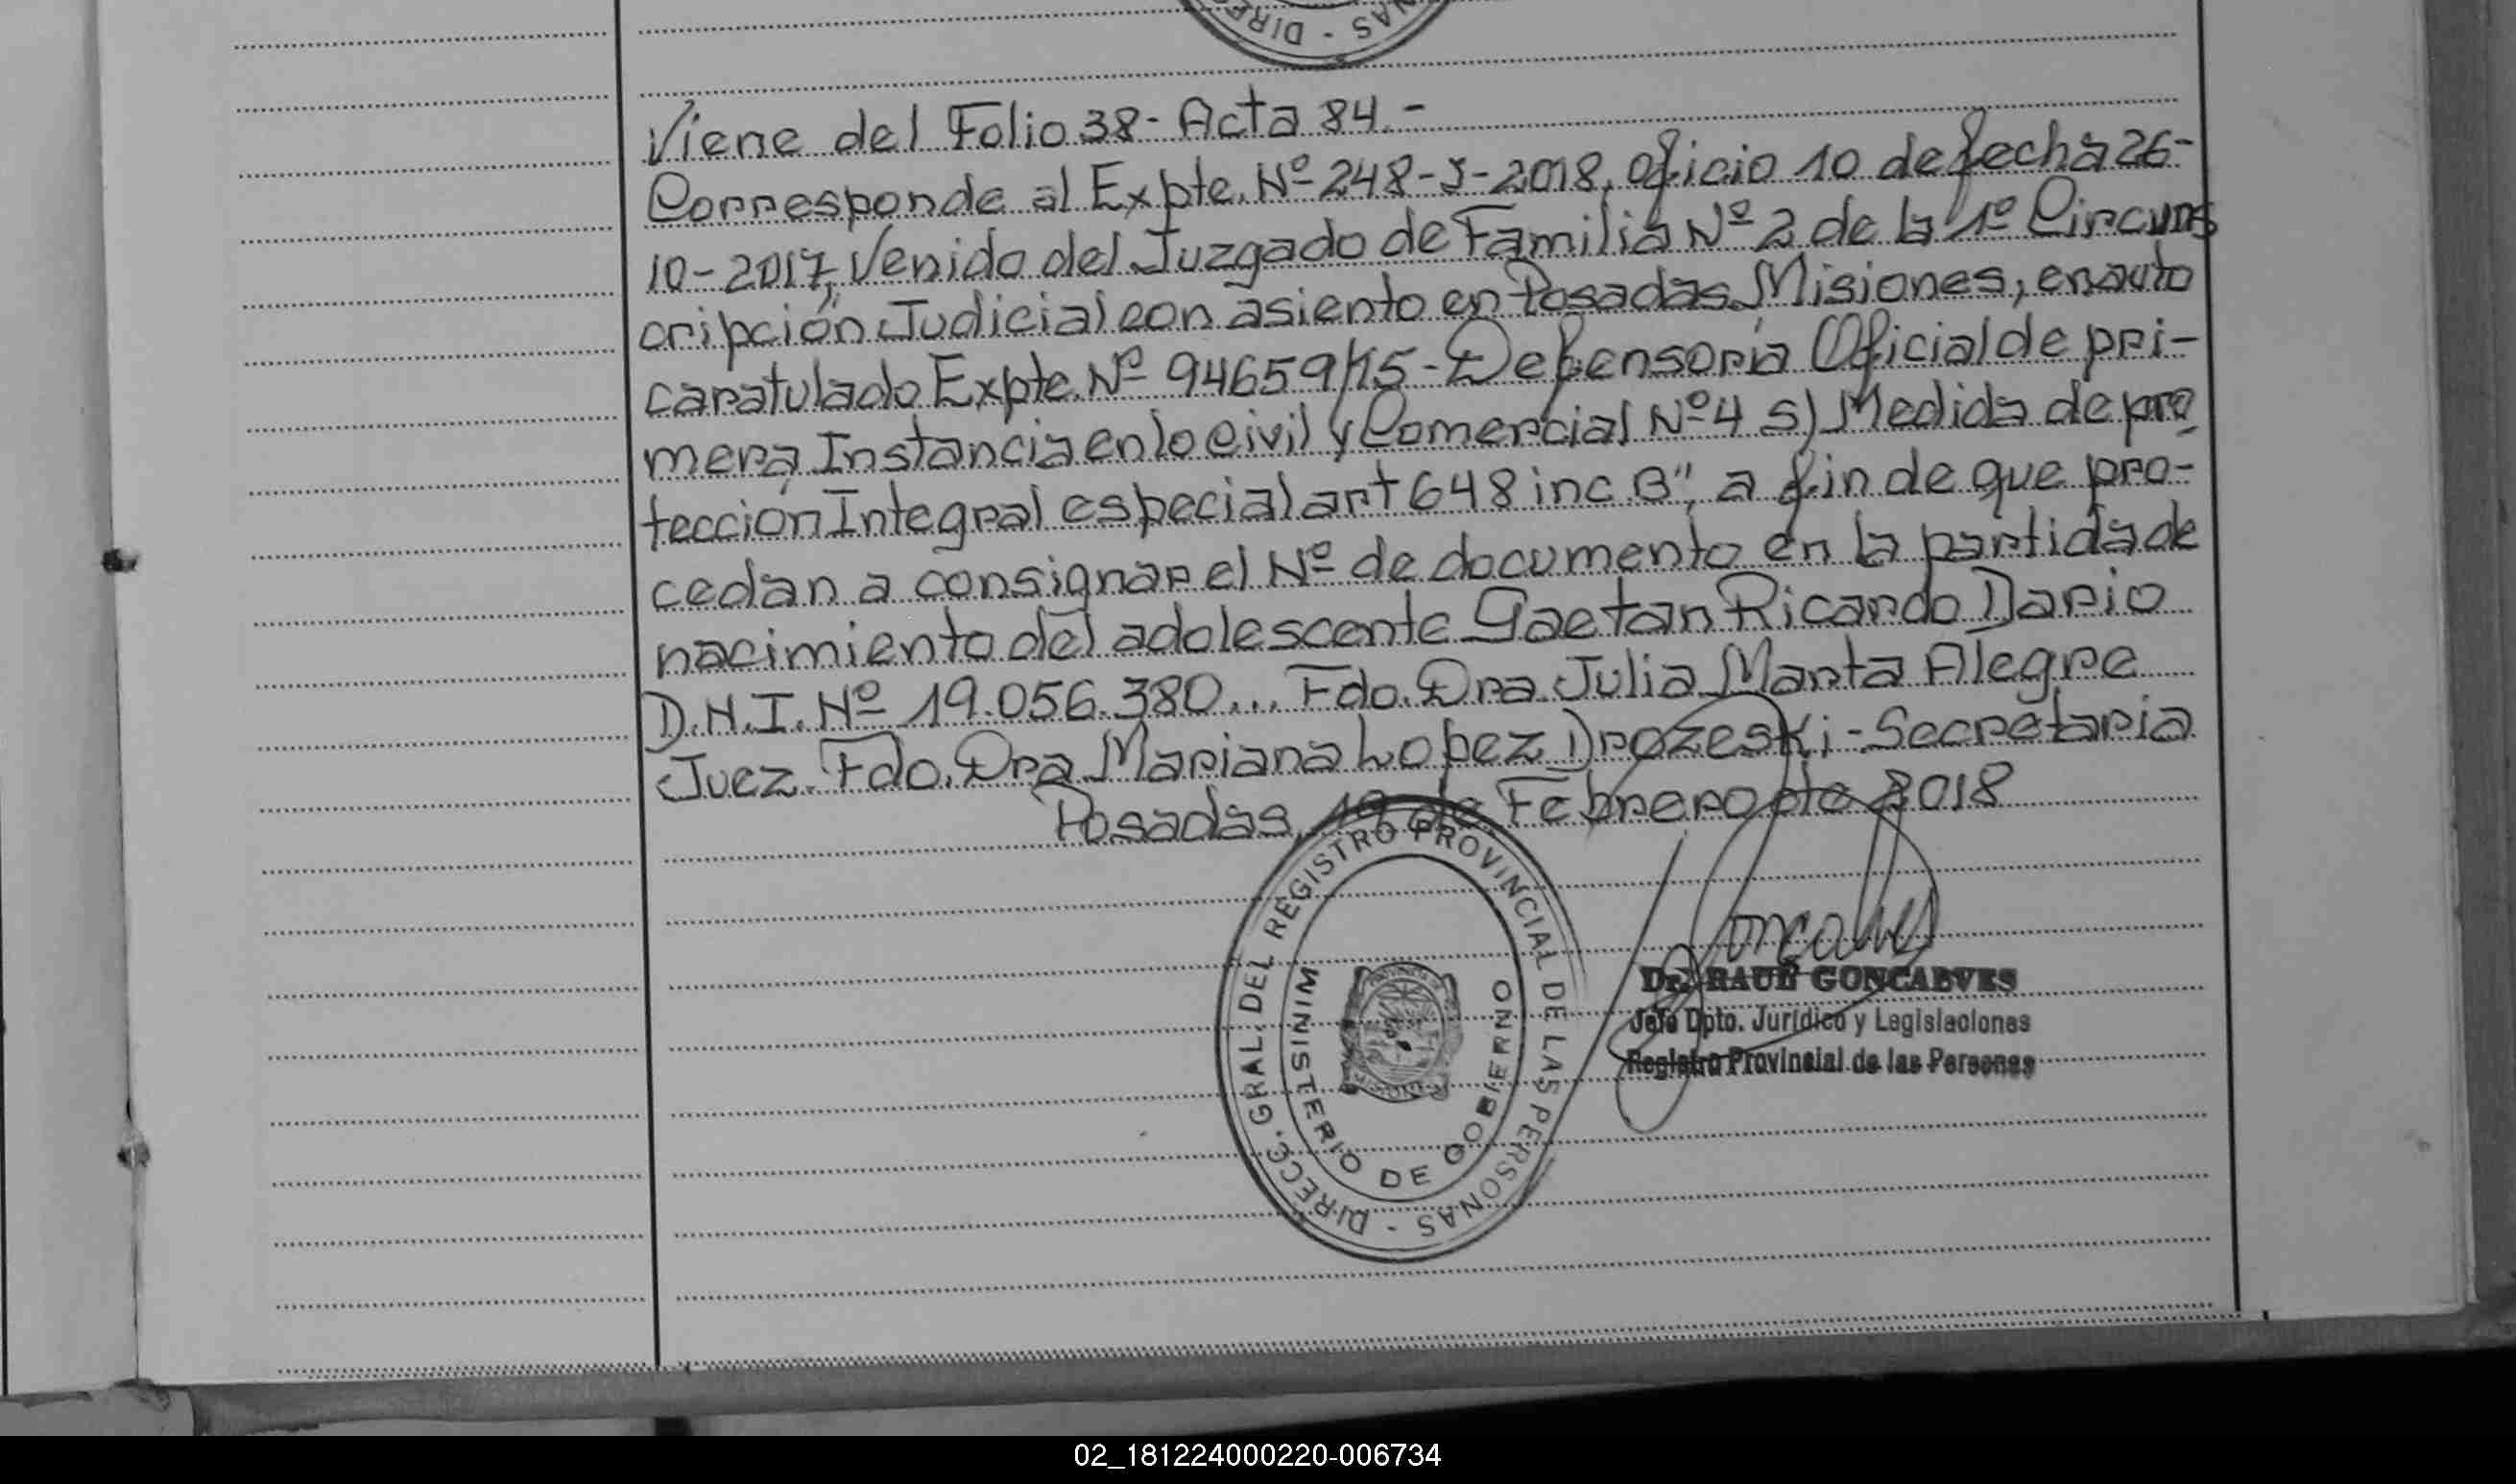 DIREC - NAS
Viene del Folio 38- Acta 84.-
Corresponde al Expte. Nº 248-J-2018, oficio 10 de fecha 26-
10-2017, Venido del Juzgado de Familia Nº 2 de la 1º Circuns
cripción Judicial con asiento en Posadas, Misiones, en auto
caratulado Expte. Nº 94659/15-Defensoría Oficial de pri-
mera, Instancia en lo Civil y Comercial Nº 4 S/ Medida de pro
tección Integral especial art 648 inc B", a fin de que pro-
cedan a consignar el Nº de documento en la partida de
nacimiento del adolescente Gaetan Ricardo Dario
D.N.I. Nº 19.056.380... Fdo. Dra. Julia Marta Alegre
Juez. Fdo. Dra Mariana Lopez Drozeski - Secretaria
Posadas, 19 de Febrero de 2018
DIRECC. GRAL. DEL REGISTRO PROVINCIAL DE LAS PERSONAS -
MINISTERIO DE GOBIERNO
Dr. RAUL GONCALVES
Jefe Dpto. Jurídico y Legislaciones
Registro Provincial de las Personas
02_181224000220-006734